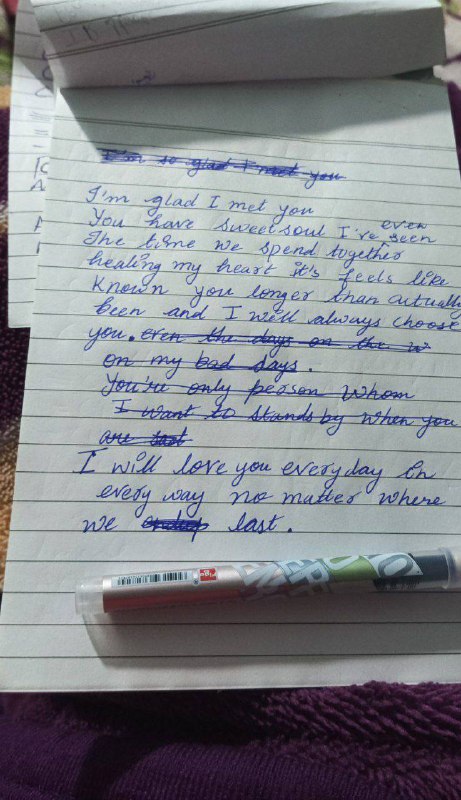 I'm so glad I met you
I'm glad I met you
You have sweet soul I've even seen
The time we spend together
healing my heart it's feels like
Known you longer than actually
been and I will always choose
you. even the days on the w
on my bad days.
You're only person whom
I want to stands by when you
are sad
I will love you everyday in
every way no matter where
we last.